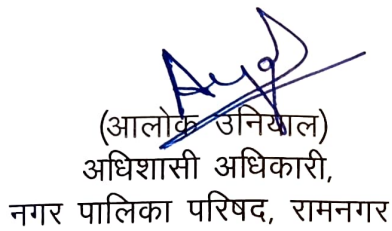 (आलोक उनियाल)
अधिशासी अधिकारी,
नगर पालिका परिषद, रामनगर